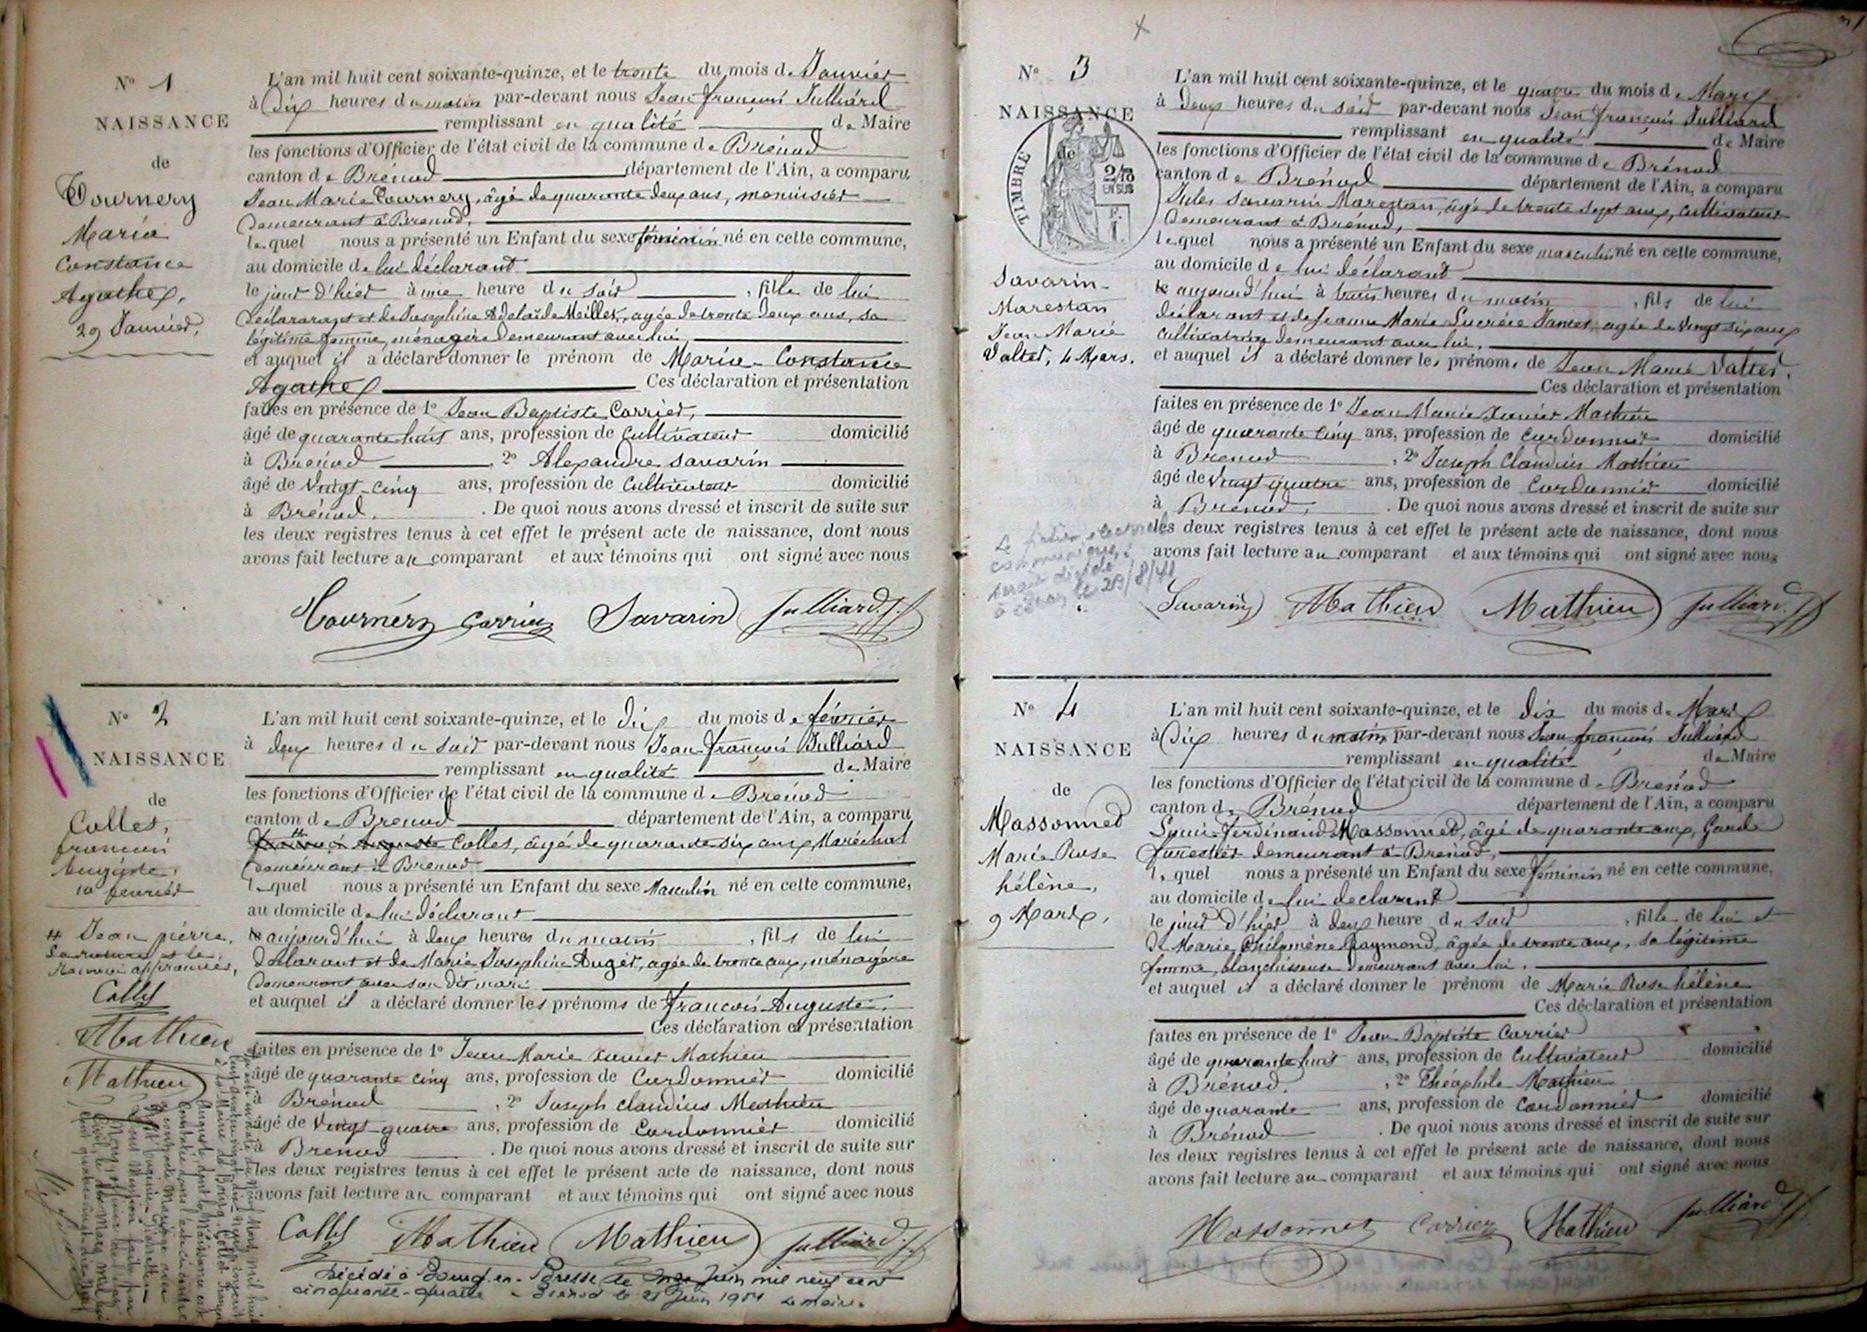 N° 1
NAISSANCE
de
Tournery
Maria
Constance
Agathe,
29 Janvier,
L'an mil huit cent soixante-quinze, et le trente du mois de Janvier
à Dix heures du matin par-devant nous Jean françois Julliard
remplissant en qualité de Maire
les fonctions d'Officier de l'état civil de la commune de Brénod
canton de Brénod département de l'Ain, a comparu
Jean Marie Tournery, âgé de quarante deux ans, menuisier
Demeurant à Brénod,
lequel nous a présenté un Enfant du sexe féminin né en cette commune,
au domicile de lui déclarant
le jour d'hier à une heure du soir, fille de lui
déclarant et de Josephine Adelaïde Millet, agée de trente deux ans, sa
légitime femme, ménagère Demeurant avec lui,
et auquel il a déclaré donner le prénom de Maria Constance
Agathe Ces déclaration et présentation
faites en présence de 1° Jean Baptiste Carrier,
âgé de quarante huit ans, profession de Cultivateur domicilié
à Brénod, 2° Alexandre Savarin
âgé de Vingt-cinq ans, profession de Cultivateur domicilié
à Brénod. De quoi nous avons dressé et inscrit de suite sur
les deux registres tenus à cet effet le présent acte de naissance, dont nous
avons fait lecture au comparant et aux témoins qui ont signé avec nous
Tournéry Carrier Savarin Julliard J. f
N° 2
NAISSANCE
de
Collet,
françois
Auguste,
10 février
# Jean pierre,
La rature et le
Renvoi approuvés,
Collet
Mathieu
Mathieu
L'an mil huit cent soixante-quinze, et le dix du mois de février
à deux heures du soir par-devant nous Jean françois Julliard
remplissant en qualité de Maire
les fonctions d'Officier de l'état civil de la commune de Brénod
canton de Brénod département de l'Ain, a comparu
# Auguste Collet, âgé de quarante six ans, Maréchal
Demeurant à Brénod
lequel nous a présenté un Enfant du sexe Masculin né en cette commune,
au domicile de lui déclarant
le aujourd'hui à deux heures du matin, fils de lui
déclarant et de Marie Josephine Auger, agée de trente ans, ménagère
Demeurant avec son dit mari
et auquel il a déclaré donner les prénoms de françois Auguste,
Ces déclaration et présentation
faites en présence de 1° Jean Marie Xavier Mathieu
âgé de quarante cinq ans, profession de Cordonnier domicilié
à Brénod, 2° Joseph Claudius Mathieu
âgé de Vingt-quatre ans, profession de Cordonnier domicilié
Brénod. De quoi nous avons dressé et inscrit de suite sur
les deux registres tenus à cet effet le présent acte de naissance, dont nous
avons fait lecture au comparant et aux témoins qui ont signé avec nous
Collet Mathieu Mathieu Julliard J. f
Décédé à Bourg-en-Bresse le Juin mil neuf cent
cinquante-quatre - Brénod le 21 Juin 1954 Le maire.
N° 3
NAISSANCE
de
TIMBRE
2/10
EN SUS
F.
1
Savarin-
Marestan
Jean Marie
Valter, 4 Mars.
L'an mil huit cent soixante-quinze, et le quatre du mois de Mars
à Deux heures du soir par-devant nous Jean françois Julliard
remplissant en qualité de Maire
les fonctions d'Officier de l'état civil de la commune de Brénod
canton de Brénod département de l'Ain, a comparu
Jules Savarin Marestan, âgé de trente sept ans, cultivateur
Demeurant à Brénod,
lequel nous a présenté un Enfant du sexe masculin né en cette commune,
au domicile de lui déclarant
le aujourd'hui à trois heures du matin, fils de lui
déclarant et de Jeanne Marie Lucrèce Jantet, agée de Vingt six ans
cultivatrice demeurant avec lui.
et auquel il a déclaré donner les prénoms de Jean Marie Valter.
Ces déclaration et présentation
faites en présence de 1° Jean Marie Xavier Mathieu
âgé de quarante cinq ans, profession de Cordonnier domicilié
à Brénod, 2° Joseph Claudius Mathieu
âgé de Vingt quatre ans, profession de Cordonnier domicilié
à Brénod. De quoi nous avons dressé et inscrit de suite sur
les deux registres tenus à cet effet le présent acte de naissance, dont nous
avons fait lecture au comparant et aux témoins qui ont signé avec nous
Savarin Mathieu Mathieu Julliard. J. f
N° 4
NAISSANCE
de
Massonnet
Marie Rose
hélène,
9 Mars,
L'an mil huit cent soixante-quinze, et le dix du mois de Mars
à Dix heures du matin par-devant nous Jean françois Julliard
remplissant en qualité de Maire
les fonctions d'Officier de l'état civil de la commune de Brénod
canton de Brénod département de l'Ain, a comparu
Louis Ferdinand Massonnet, âgé de quarante ans, Garde
forestier demeurant à Brénod,
lequel nous a présenté un Enfant du sexe féminin né en cette commune,
au domicile de lui declarent
le jour d'hier à deux heure du soir, fille de lui et
de Marie Philomène Raymond, agée de trente ans, sa légitime
femme, blanchisseuse demeurant avec lui.
et auquel il a déclaré donner le prénom de Marie Rose hélène
Ces déclaration et présentation
faites en présence de 1° Jean Baptiste Carrier
âgé de quarante huit ans, profession de Cultivateur domicilié
à Brénod, 2° Théophile Mathieu
âgé de quarante ans, profession de Cordonnier domicilié
à Brénod. De quoi nous avons dressé et inscrit de suite sur
les deux registres tenus à cet effet le présent acte de naissance, dont nous
avons fait lecture au comparant et aux témoins qui ont signé avec nous
Massonnet Carrier Mathieu Julliard J. f